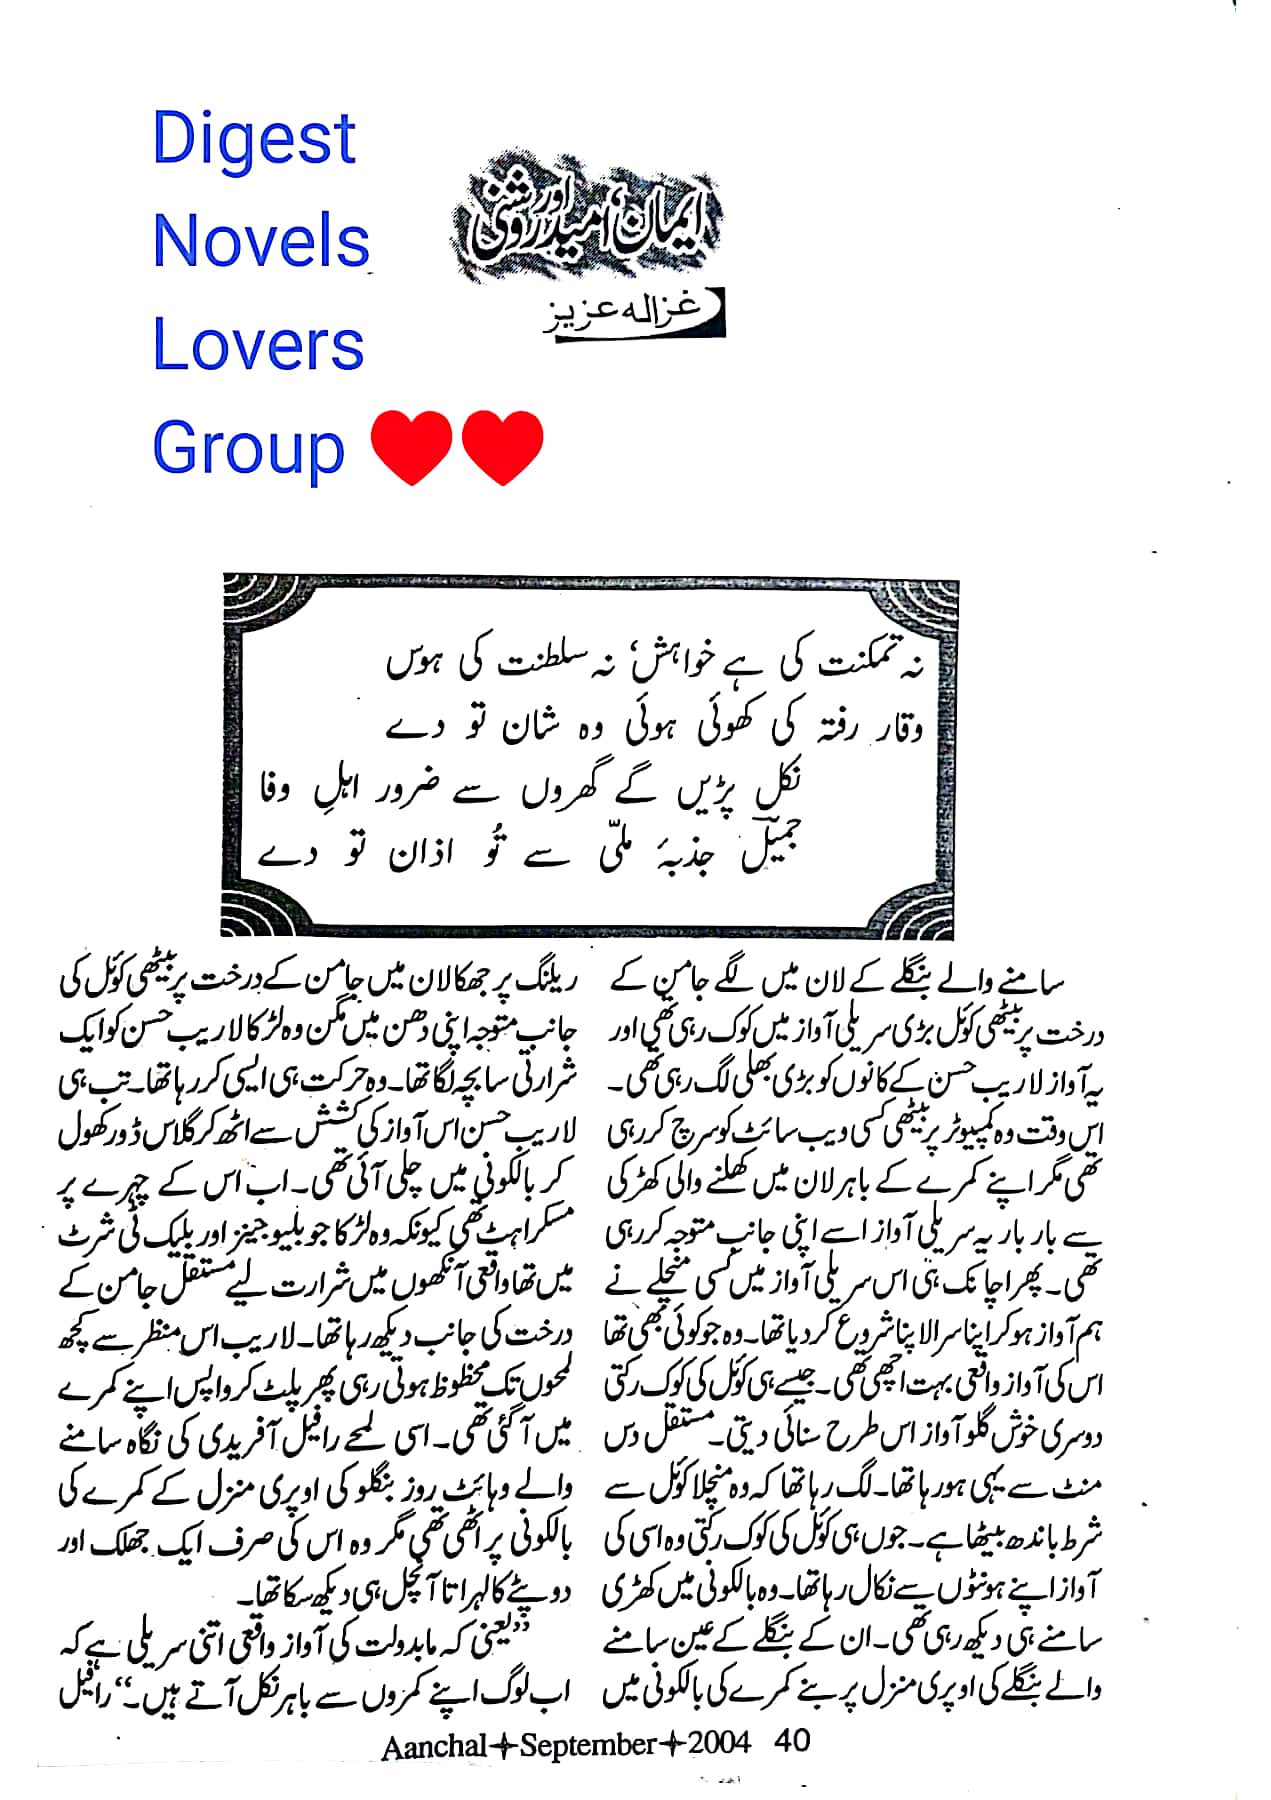 Digest
Novels
Lovers
Group ❤❤
ایمان، امید اور روشنی
غزالہ عزیز
نہ تمکنت کی ہے خواہش، نہ سلطنت کی ہوس
وقار رفتہ کی کھوئی ہوئی وہ شان تو دے
نکل پڑیں گے گھروں سے ضرور اہلِ وفا
جمیلؔ جذبۂ ملّی سے تُو اذان تو دے
سامنے والے بنگلے کے لان میں لگے جامن کے
درخت پر بیٹھی کوئل بڑی سریلی آواز میں کوک رہی تھی اور
یہ آواز لاریب حسن کے کانوں کو بڑی بھلی لگ رہی تھی۔
اس وقت وہ کمپیوٹر پر بیٹھی کسی ویب سائٹ کو سرچ کر رہی
تھی مگر اپنے کمرے کے باہر لان میں کھلنے والی کھڑکی
سے بار بار یہ سریلی آواز اسے اپنی جانب متوجہ کر رہی
تھی۔ پھر اچانک ہی اس سریلی آواز میں کسی منچلے نے
ہم آواز ہو کر اپنا سر الاپنا شروع کر دیا تھا۔ وہ جو کوئی بھی تھا
اس کی آواز واقعی بہت اچھی تھی۔ جیسے ہی کوئل کی کوک رکتی
دوسری خوش گلو آواز اس طرح سنائی دیتی۔ مستقل دس
منٹ سے یہی ہو رہا تھا۔ لگ رہا تھا کہ وہ منچلا کوئل سے
شرط باندھ بیٹھا ہے۔ جوں ہی کوئل کی کوک رکتی وہ اسی کی
آواز اپنے ہونٹوں سے نکال رہا تھا۔ وہ بالکونی میں کھڑی
سامنے ہی دیکھ رہی تھی۔ ان کے بنگلے کے عین سامنے
والے بنگلے کی اوپری منزل پر بنے کمرے کی بالکونی میں
ریلنگ پر جھکا لان میں جامن کے درخت پر بیٹھی کوئل کی
جانب متوجہ اپنی دھن میں مگن وہ لڑکا لاریب حسن کو ایک
شرارتی سا بچہ لگا تھا۔ وہ حرکت ہی ایسی کر رہا تھا۔ تب ہی
لاریب حسن اس آواز کی کشش سے اٹھ کر گلاس ڈور کھول
کر بالکونی میں چلی آئی تھی۔ اب اس کے چہرے پر
مسکراہٹ تھی کیونکہ وہ لڑکا جو بلیو جینز اور بلیک ٹی شرٹ
میں تھا واقعی آنکھوں میں شرارت لیے مستقل جامن کے
درخت کی جانب دیکھ رہا تھا۔ لاریب اس منظر سے کچھ
لمحوں تک محظوظ ہوتی رہی پھر پلٹ کر واپس اپنے کمرے
میں آ گئی تھی۔ اسی لمحے رافیل آفریدی کی نگاہ سامنے
والے وہائٹ روز بنگلو کی اوپری منزل کے کمرے کی
بالکونی پر اٹھی تھی مگر وہ اس کی صرف ایک جھلک اور
دوپٹے کا لہراتا آنچل ہی دیکھ سکا تھا۔
”یعنی کہ مابدولت کی آواز واقعی اتنی سریلی ہے کہ
اب لوگ اپنے کمروں سے باہر نکل آتے ہیں۔“ رافیل
Aanchal✦September✦2004 40